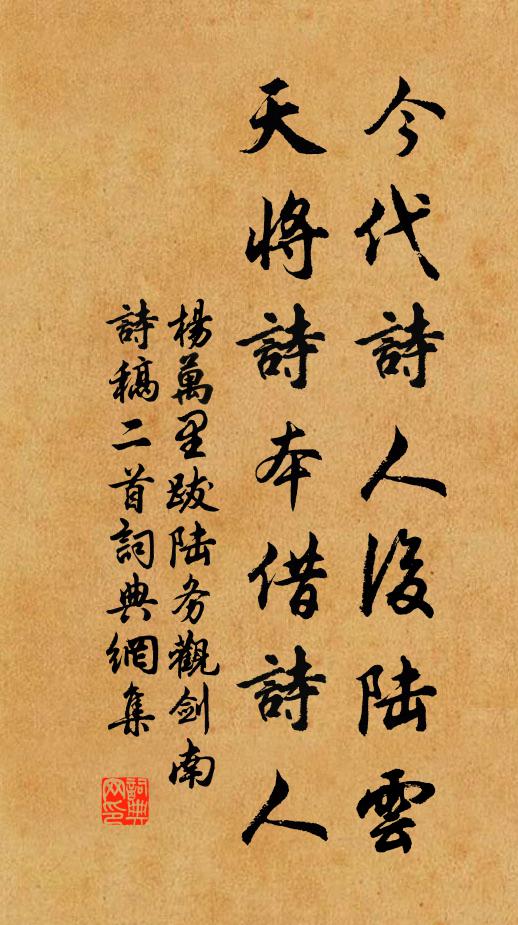 今代詩人後陸雲
天將詩本借詩人
楊萬里跋陸务觀劍南
詩稿二首詞典網集
詞典网印